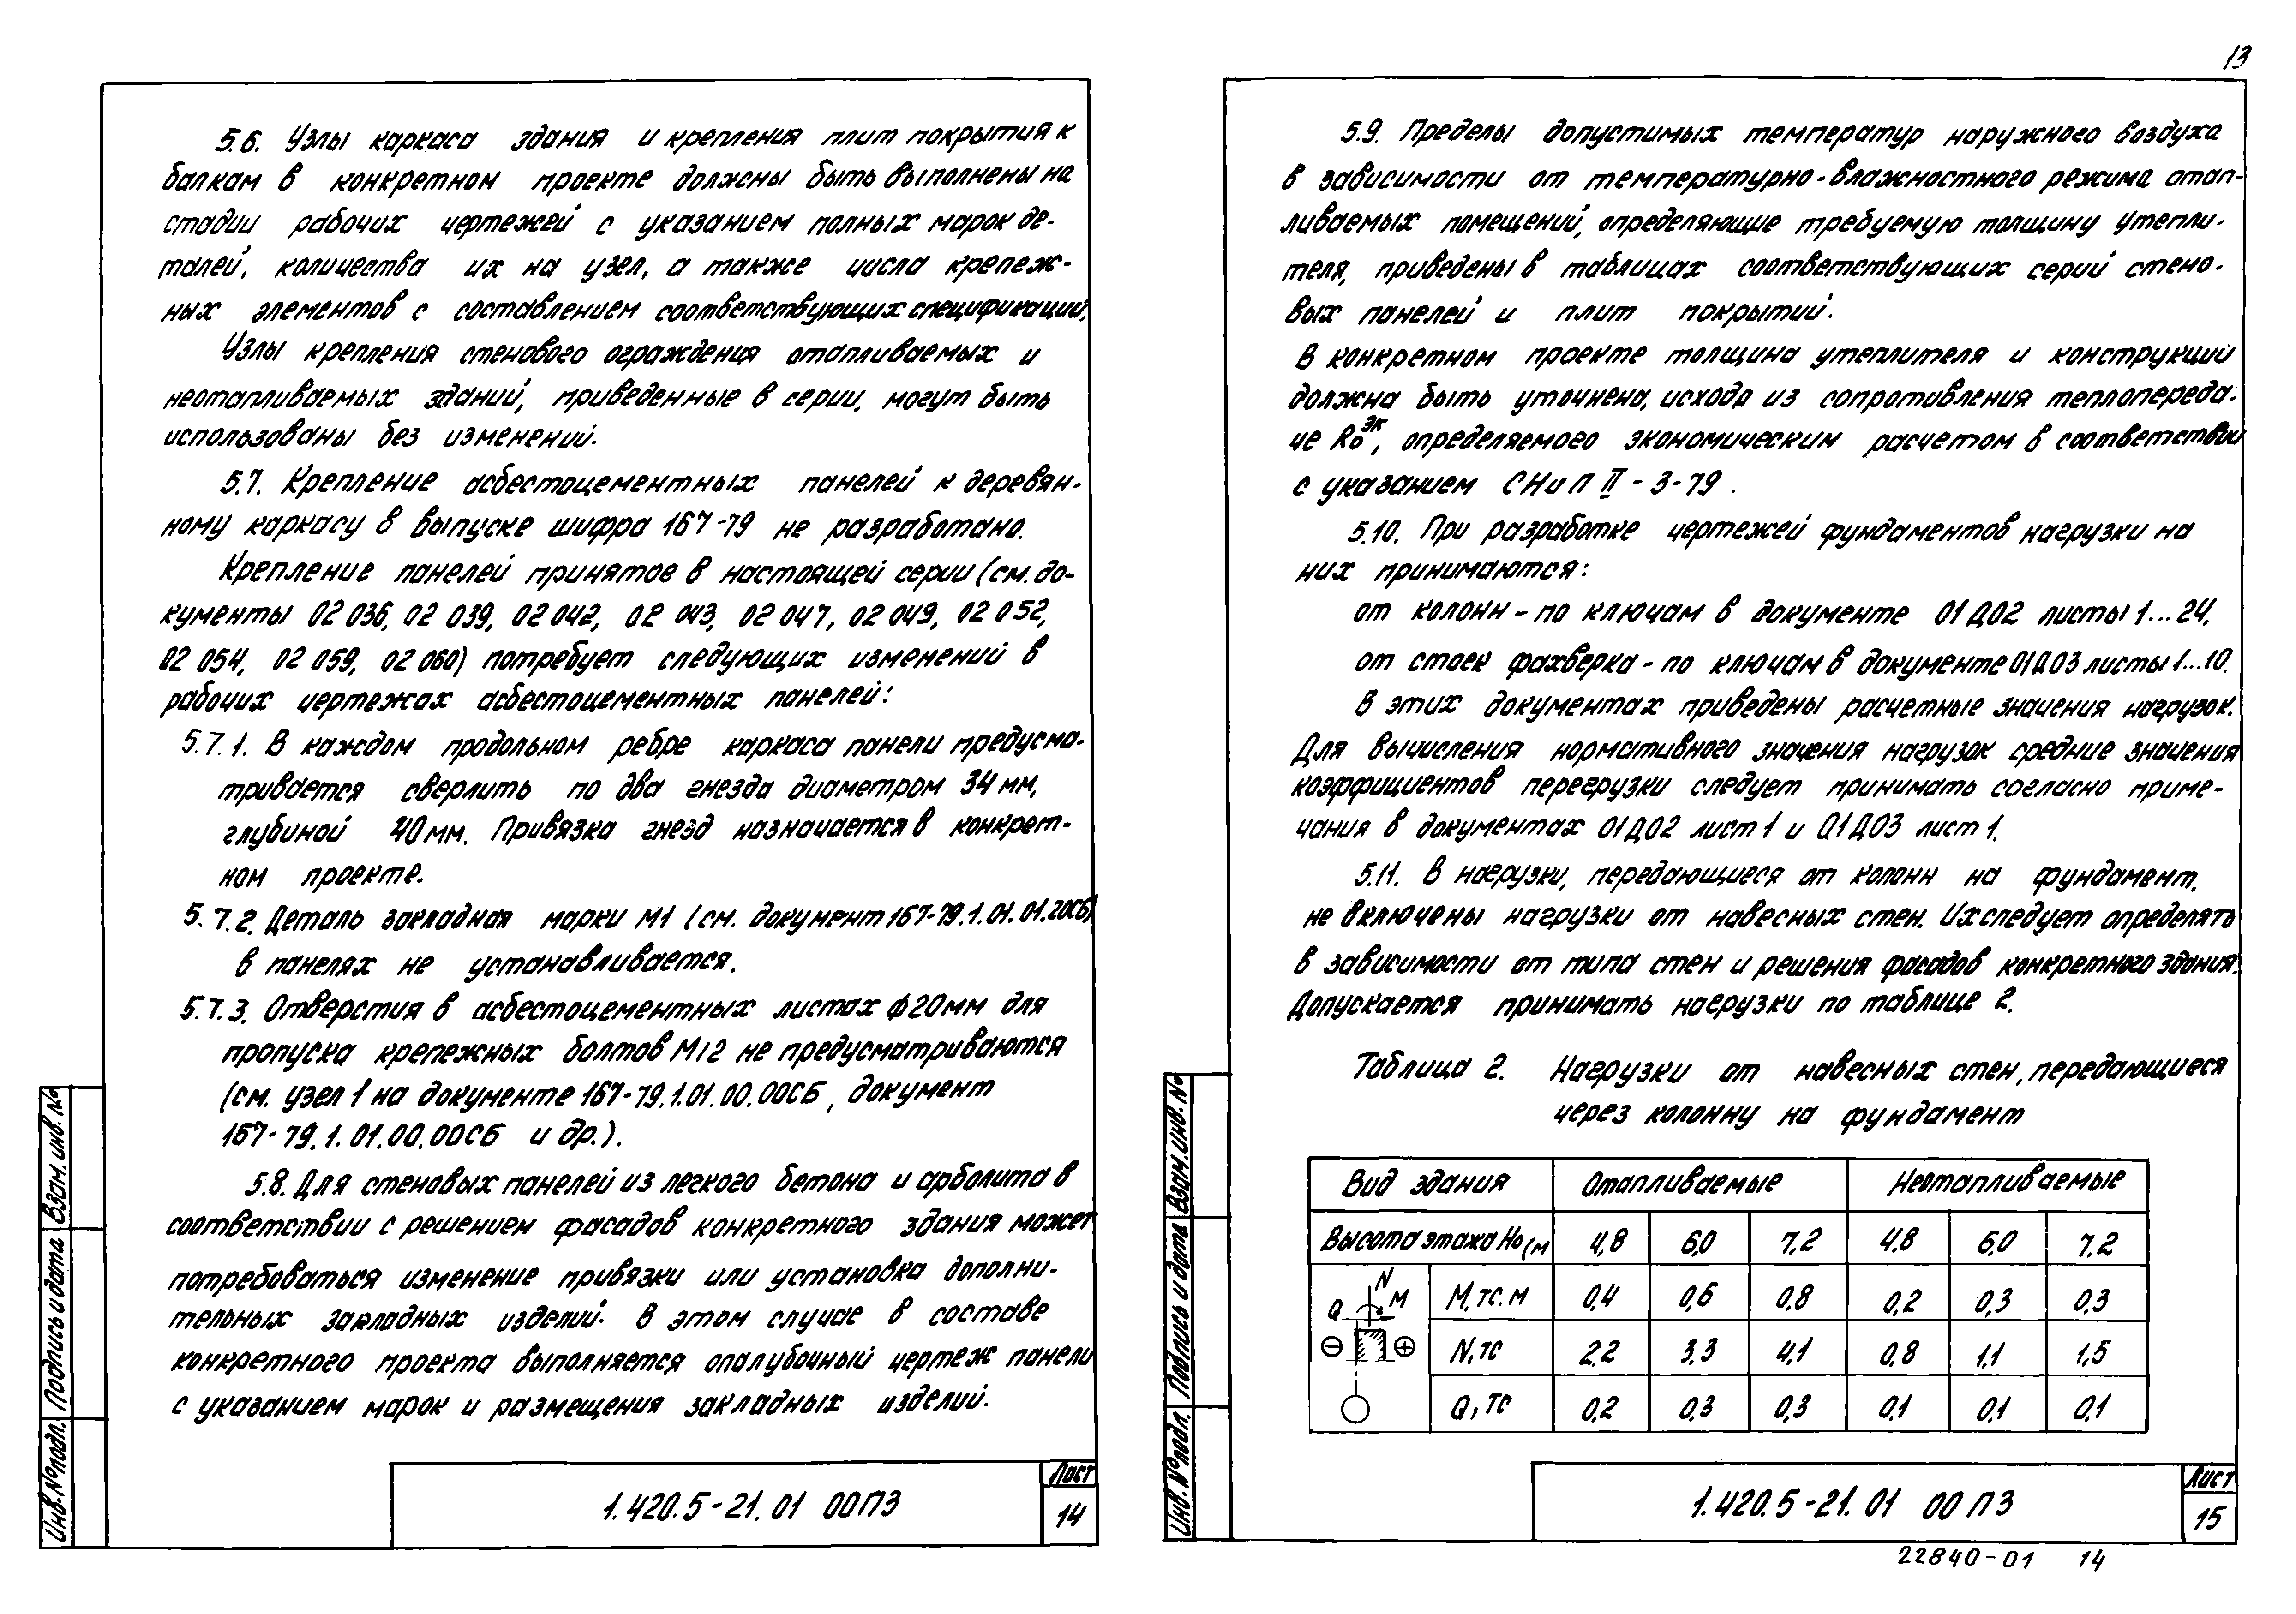 13
5.6. Узлы каркаса здания и крепления плит покрытия к
балкам в конкретном проекте должны быть выполнены на
стадии рабочих чертежей с указанием полных марок де-
талей, количества их на узел, а также числа крепеж-
ных элементов с составлением соответствующих спецификаций.
Узлы крепления стенового ограждения отапливаемых и
неотапливаемых зданий, приведенные в серии, могут быть
использованы без изменений.
5.7. Крепление асбестоцементных панелей к деревян-
ному каркасу в выпуске шифра 167-79 не разработано.
Крепление панелей принятое в настоящей серии (см. до-
кументы 02 036, 02 039, 02 042, 02 043, 02 047, 02 049, 02 052,
02 054, 02 059, 02 060) потребует следующих изменений в
рабочих чертежах асбестоцементных панелей:
5.7.1. В каждом продольном ребре каркаса панели предусма-
тривается сверлить по два гнезда диаметром 34 мм,
глубиной 40 мм. Привязка гнезд назначается в конкрет-
ном проекте.
5.7.2. Деталь закладная марки М1 (см. документ 167-79.1.01.01.20СБ)
в панелях не устанавливается.
5.7.3. Отверстия в асбестоцементных листах ф20мм для
пропуска крепежных болтов М12 не предусматриваются
(см. узел 1 на документе 167-79.1.01.00.00СБ, документ
167-79.1.01.00.00СБ и др.).
5.8. Для стеновых панелей из легкого бетона и арболита в
соответствии с решением фасадов конкретного здания может
потребоваться изменение привязки или установка дополни-
тельных закладных изделий. В этом случае в составе
конкретного проекта выполняется опалубочный чертеж панели
с указанием марок и размещения закладных изделий.
Инв. № подл. Подпись и дата Взам. инв. №
1.420.5-21.01 00ПЗ
Лист
14
5.9. Пределы допустимых температур наружного воздуха
в зависимости от температурно-влажностного режима отап-
ливаемых помещений, определяющие требуемую толщину утепли-
теля, приведены в таблицах соответствующих серий стено-
вых панелей и плит покрытий.
В конкретном проекте толщина утеплителя и конструкций
должна быть уточнена, исходя из сопротивления теплопереда-
че Rо эк, определяемого экономическим расчетом в соответствии
с указанием СНиП II-3-79.
5.10. При разработке чертежей фундаментов нагрузки на
них принимаются:
от колонн - по ключам в документе 01Д02 листы 1...24,
от стоек фахверка - по ключам в документе 01Д03 листы 1...10.
В этих документах приведены расчетные значения нагрузок.
Для вычисления нормативного значения нагрузок средние значения
коэффициентов перегрузки следует принимать согласно приме-
чания в документах 01Д02 лист 1 и 01Д03 лист 1.
5.11. В нагрузки, передающиеся от колонн на фундамент,
не включены нагрузки от навесных стен. Их следует определять
в зависимости от типа стен и решения фасадов конкретного здания.
Допускается принимать нагрузки по таблице 2.
Таблица 2. Нагрузки от навесных стен, передающиеся
через колонну на фундамент
Вид здания Отапливаемые Неотапливаемые
Высота этажа Но(м 4,8 6,0 7,2 4,8 6,0 7,2
N
Q M
⊖ ⊕
М, тс.м 0,4 0,6 0,8 0,2 0,3 0,3
N, тс 2,2 3,3 4,1 0,8 1,1 1,5
Q, тс 0,2 0,3 0,3 0,1 0,1 0,1
Инв. № подл. Подпись и дата Взам. инв. №
1.420.5-21.01 00ПЗ
Лист
15
22840-01 14